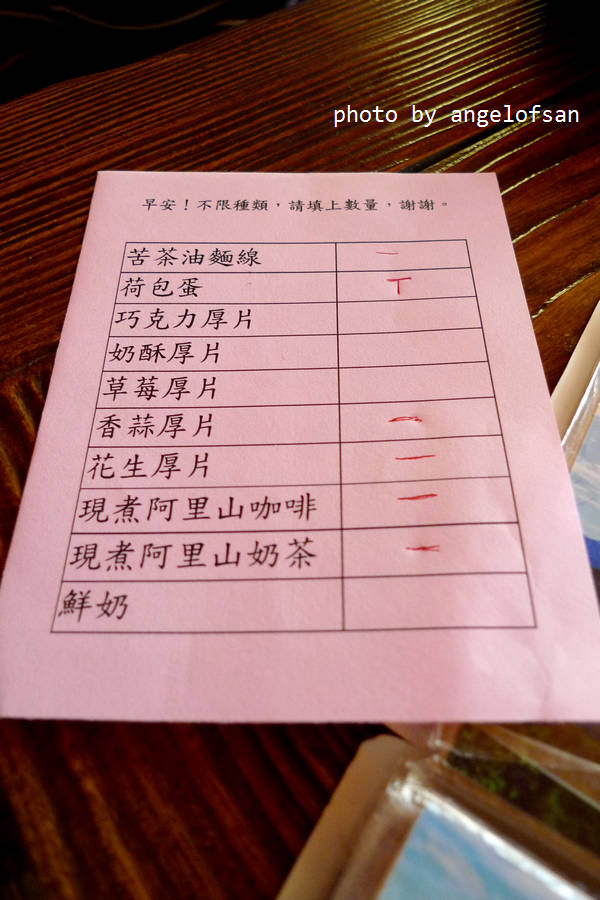 photo by angelofsan
早安！不限種類，請填上數量，謝謝。
苦茶油麵線 一
荷包蛋 丅
巧克力厚片
奶酥厚片
草莓厚片
香蒜厚片 一
花生厚片 一
現煮阿里山咖啡 一
現煮阿里山奶茶 一
鮮奶